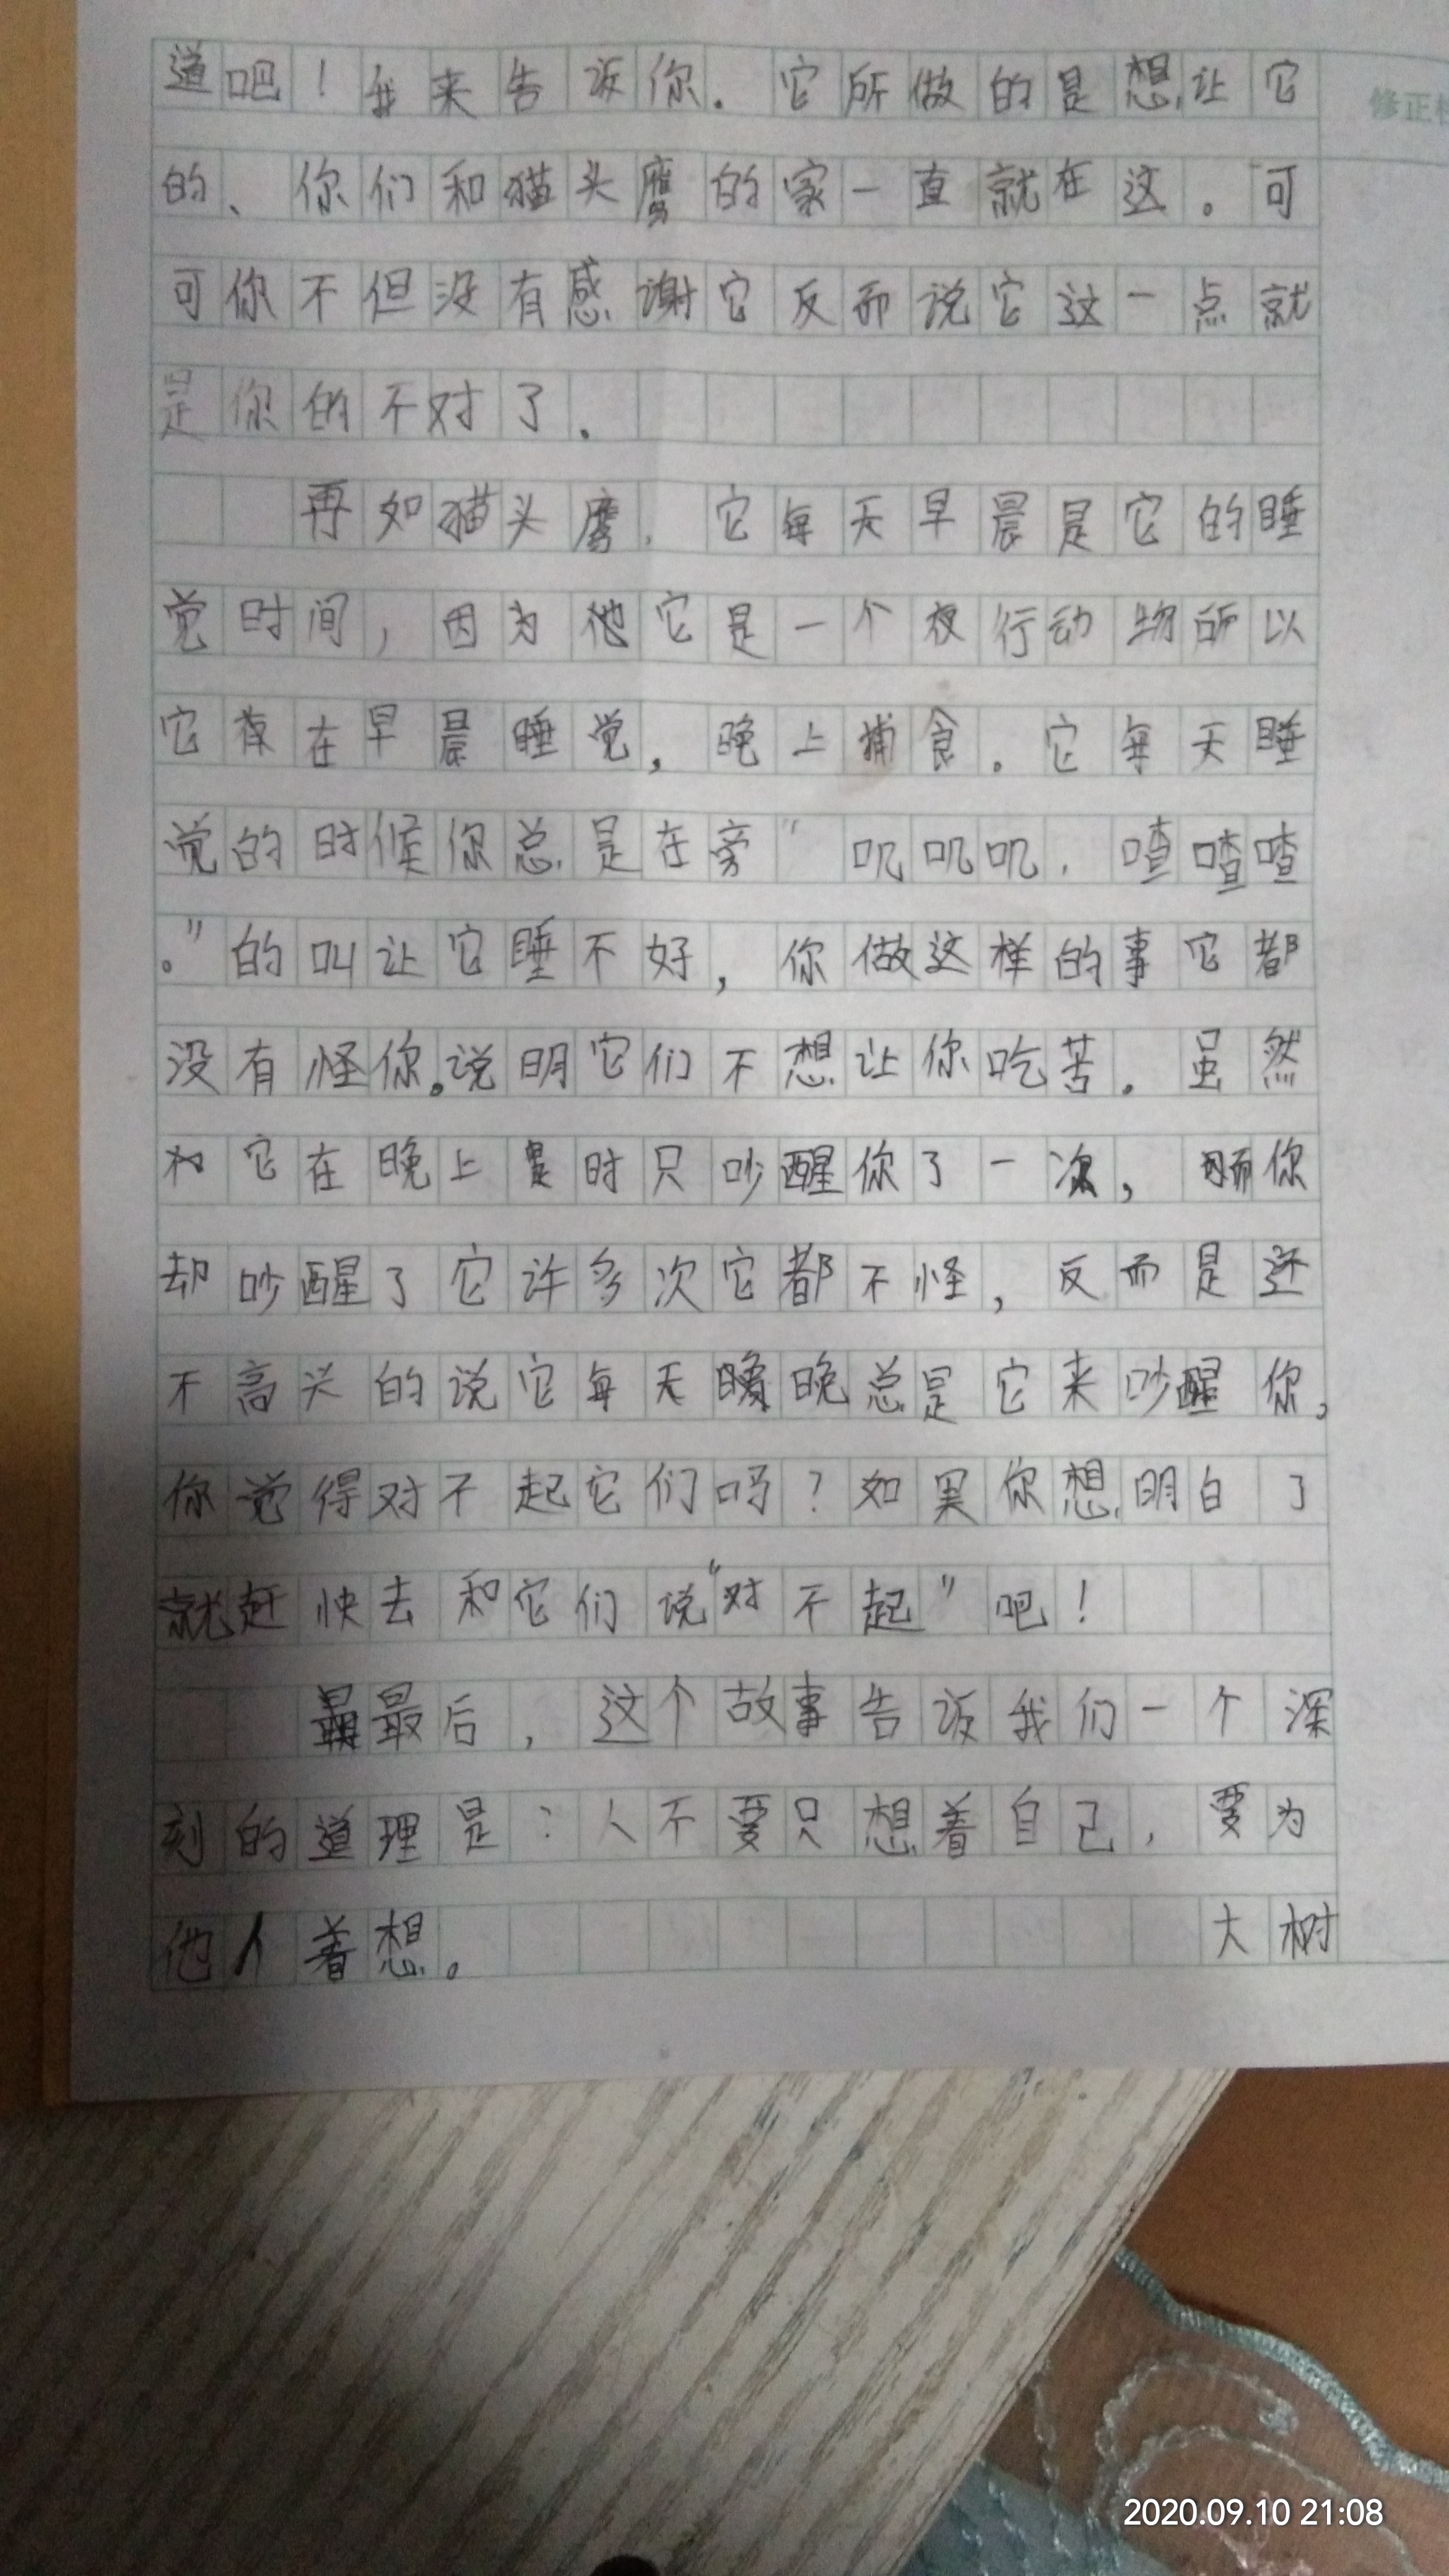 道吧！我来告诉你．它所做的是想让它
修正栏
的、你们和猫头鹰的家一直就在这。可
可你不但没有感谢它反而说它这一点就
是你的不对了．
再如猫头鹰，它每天早晨是它的睡
觉时间，因为他它是一个夜行动物所以
它在早晨睡觉，晚上捕食．它每天睡
觉的时候你总是在旁"叽叽叽．喳喳喳
。"的叫让它睡不好，你做这样的事它都
没有怪你。说明它们不想让你吃苦．虽然
它在晚上时只吵醒你了一次，而你
却吵醒了它许多次它都不怪，反而是还
不高兴的说它每天晚总是它来吵醒你，
你觉得对不起它们吗？如果你想明白了
就赶快去和它们说"对不起"吧！
最后，这个故事告诉我们一个深
刻的道理是：人不要只想着自己，要为
他人着想。 大树
2020.09.10 21:08